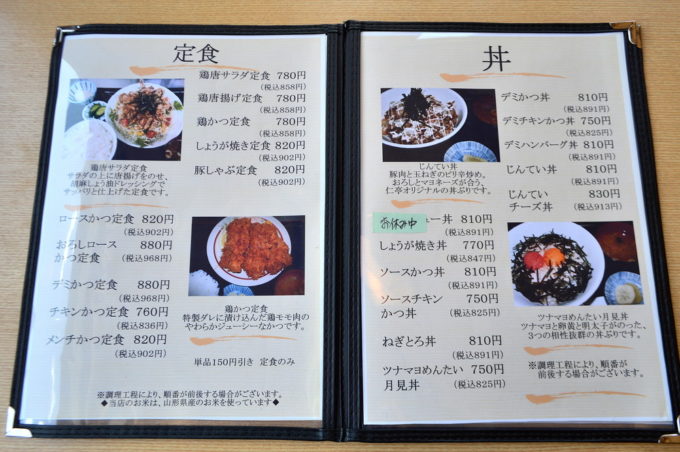 定食
鶏唐サラダ定食 780円
(税込858円)
鶏唐揚げ定食 780円
(税込858円)
鶏かつ定食 780円
(税込858円)
しょうが焼き定食 820円
(税込902円)
豚しゃぶ定食 820円
(税込902円)
鶏唐サラダ定食
サラダの上に唐揚げをのせ、
胡麻しょう油ドレッシングで
サッパリと仕上げた定食です。
ロースかつ定食 820円
(税込902円)
おろしロース 880円
かつ定食 (税込968円)
デミかつ定食 880円
(税込968円)
チキンかつ定食 760円
(税込836円)
メンチかつ定食 820円
(税込902円)
鶏かつ定食
特製ダレに漬け込んだ鶏モモ肉の
やわらかジューシーなかつです。
単品150円引き 定食のみ
※調理工程により、順番が前後する場合がございます。
◆当店のお米は、山形県産のお米を使っています◆
丼
デミかつ丼 810円
(税込891円)
デミチキンかつ丼 750円
(税込825円)
デミハンバーグ丼 810円
(税込891円)
じんてい丼 810円
(税込891円)
じんてい 830円
チーズ丼 (税込913円)
じんてい丼
豚肉と玉ねぎのピリ辛炒め。
おろしとマヨネーズが合う、
仁亭オリジナルの丼ぶりです。
お休み中
ュー丼 810円
(税込891円)
しょうが焼き丼 770円
(税込847円)
ソースかつ丼 810円
(税込891円)
ソースチキン 750円
かつ丼 (税込825円)
ねぎとろ丼 810円
(税込891円)
ツナマヨめんたい 750円
月見丼 (税込825円)
ツナマヨめんたい月見丼
ツナマヨと卵黄と明太子がのった、
3つの相性抜群の丼ぶりです。
※調理工程により、順番が
前後する場合がございます。